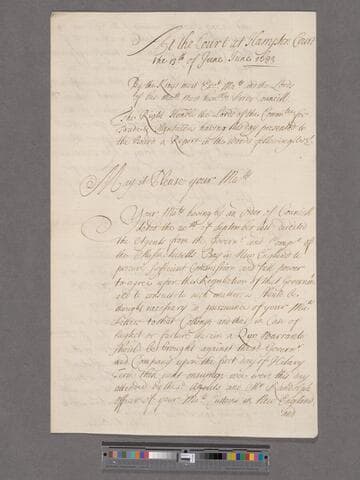 At the Court at Hampton Court
the 13th of June 1683
By the Kings most Excel. Maty. and the Lords
of his Maties most honble Privy Councill
The Right Honble the Lords of the Committee for
Trade & Plantations having this day presented to
the Board a Report in the words following viz.
May it Please your Maty
Your Maty having by an Order of Councill
dated the 20th of September last directed
the Agents from the Govern. and Comp. of
the Massachusetts Bay in New England to
procure sufficient Commission and full power
to agree upon that Regulation of that Governmt
as should be
thought necessary in pursuance of your Maties
Letters to that Colony and that in Case of
neglect or failure therein a Quo Warranto
should be brought against their Governr
and Company upon the first day of Hilary
Term then next ensuing, wee were this day
attended by the Agents and Mr. Randolph
Officer of your Maties Customs in New England
and